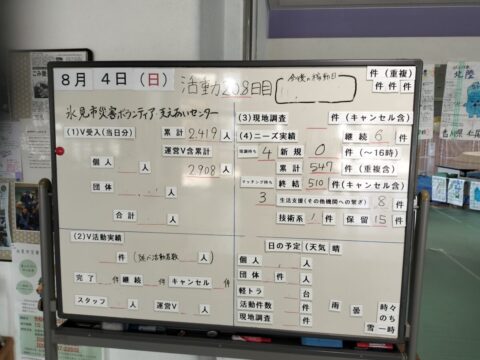 8月4日(日) 活動208日目
今後の稼働日
件(重複)
件 件 件
氷見市災害ボランティア支えあいセンター
(1)V受入(当日分) 累計 2,419人
運営V含累計
2908人
個人 人
団体 人
合計 人
(2)V活動実績
件(延べ活動者数 人)
完了 件 継続 件 キャンセル 件
スタッフ 人 運営V 人
(3)現地調査 件(キャンセル含)
(4)ニーズ実績 継続 6 件
4 新規 0 件(~16時)
累計 547 件(重複含)
マッチング待ち 終結 510 件(キャンセル含)
3 生活支援(その他機関への繋ぎ) 8 件
技術系 1 件 保留 15 件
日の予定(天気 晴
個人 人
団体 件 人
軽トラ 台
活動件数 件
現地調査 件
雨 曇 時々
のち
雪 一時
北陸